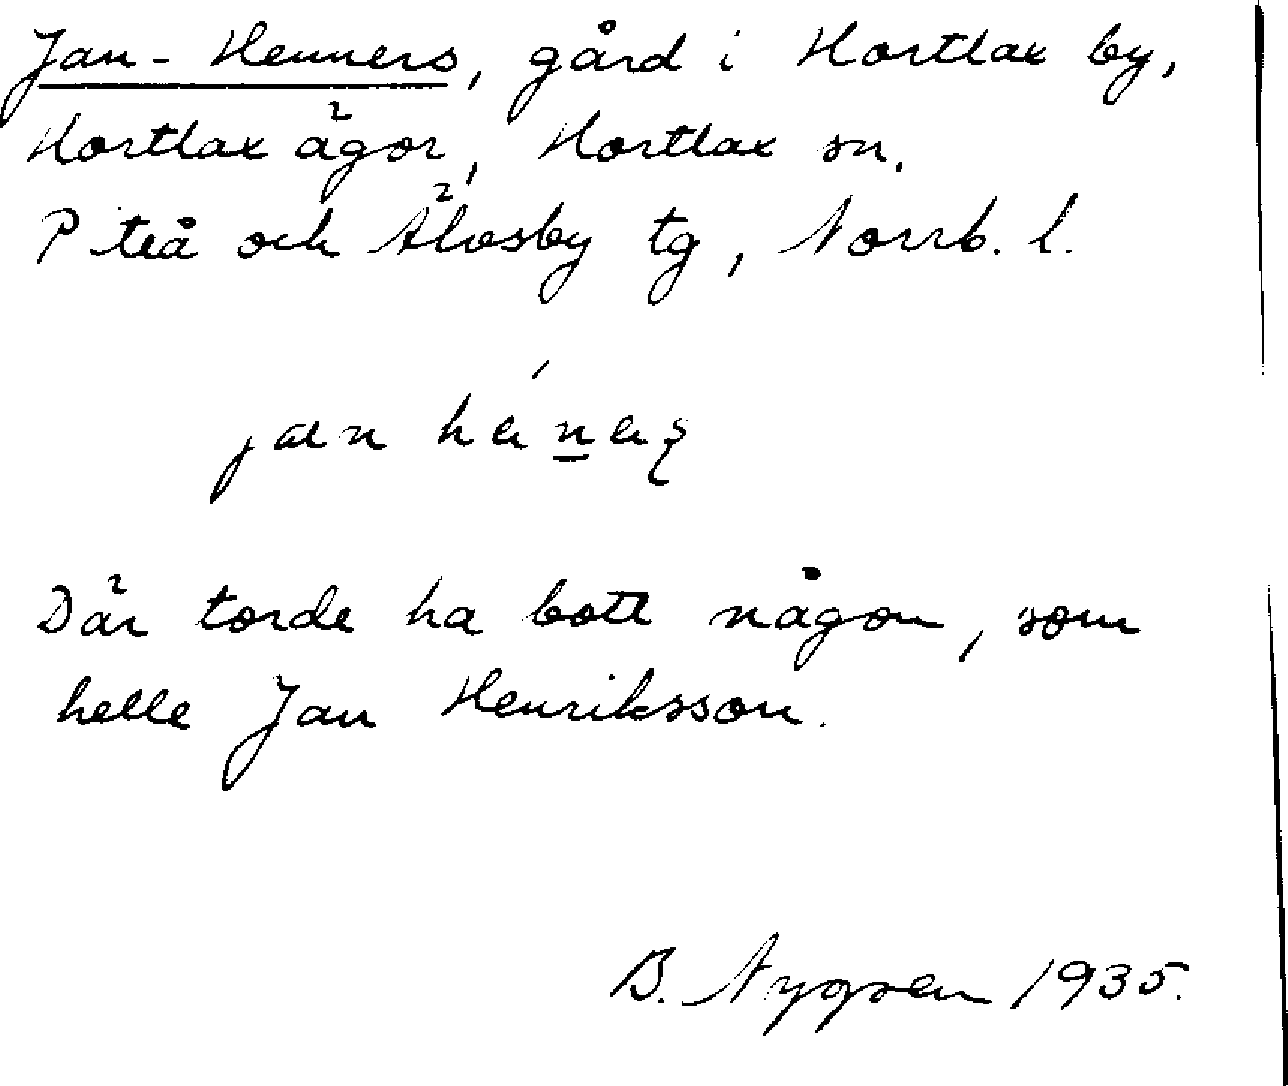 Jan-Henners, gård i Hortlax by,
Hortlax ägor, Hortlax sn.
Piteå och Älvsby tg, Norrb. l.
Där torde ha bott någon, som
hette Jan Henriksson.
B. Nygren 1935.